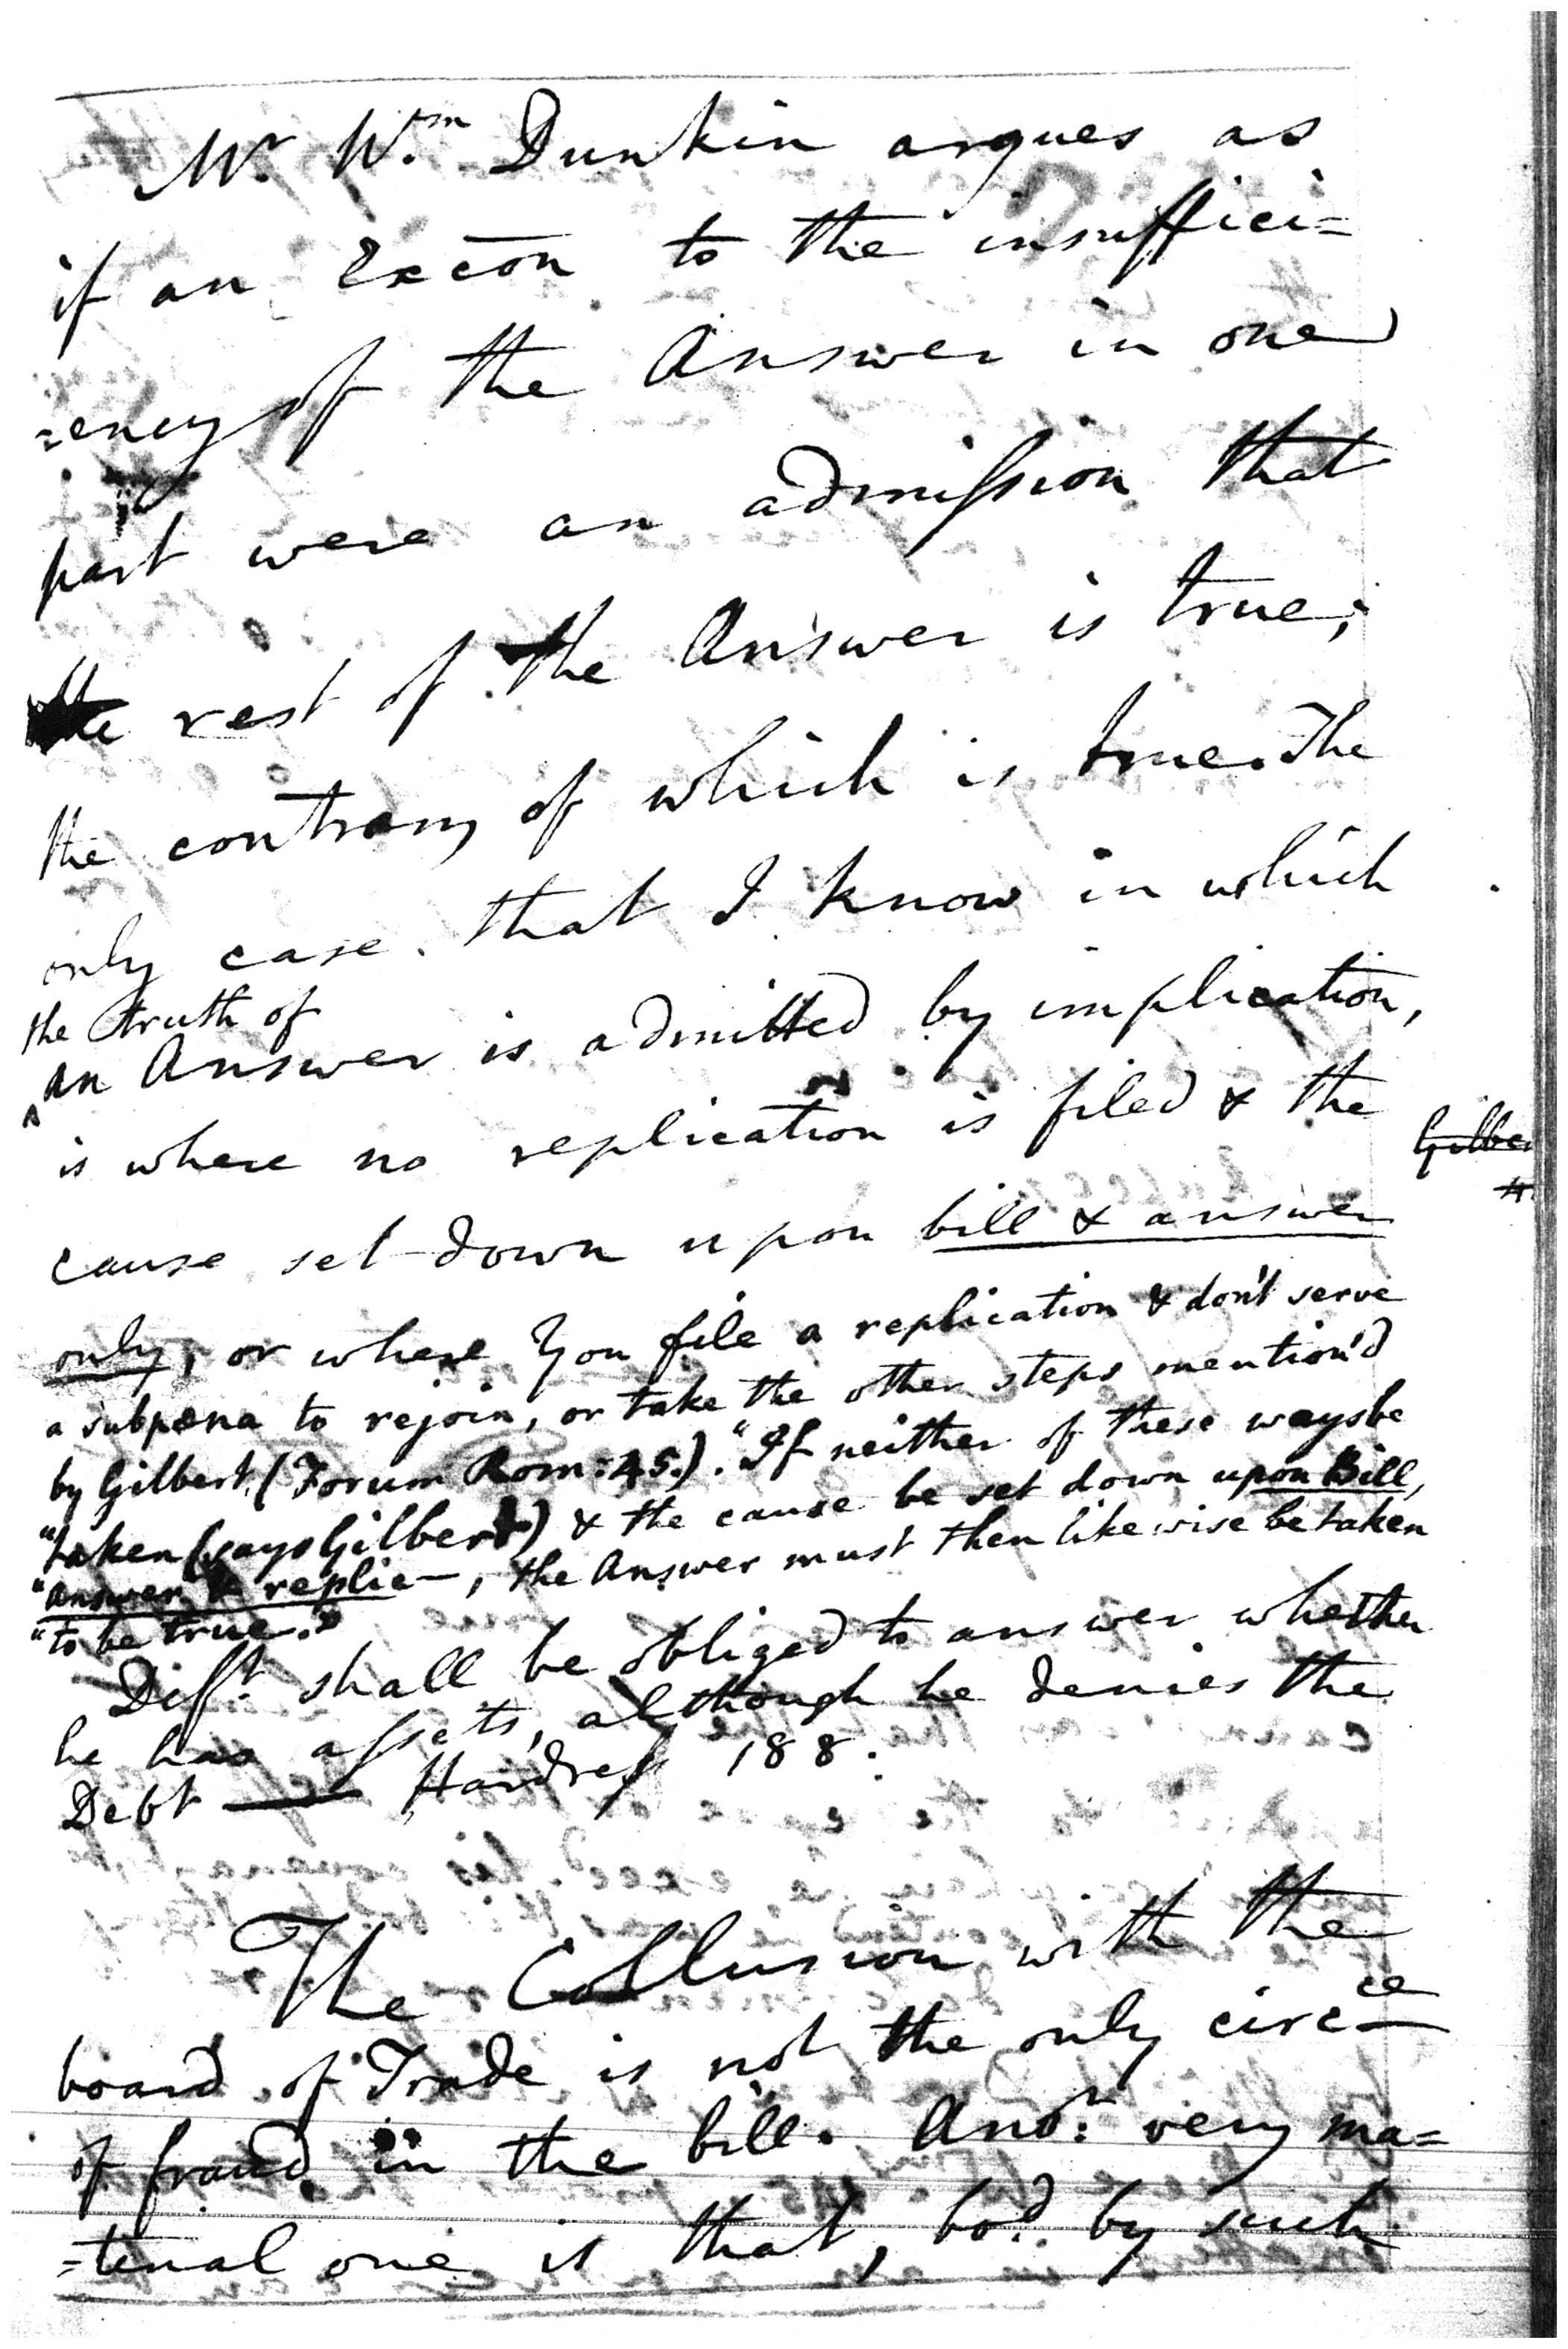 Mr. Wm. Dunkin argues as
if an Excōn to the insuffici=
=ency of the Answer in one
part were an admission that
the rest of the Answer is true;
the contrary of which is true. The
only case that I know in which
the truth of
^an Answer is admitted by implication,
is where no replication is filed & the
Gilber
cause set down upon bill & answer
only, or where you file a replication & don't serve
a subpœna to rejoin, or take the other steps mention'd
by Gilbert. (Forum Rom: 45.). "If neither of these ways be
"taken (says Gilbert) & the cause be set down upon Bill,
"answer & replic—, the Answer must then likewise be taken
"to be true."
Difft. shall be obliged to answer whether
he has assets, although he denies the
Debt — Hardress 188.
The Collusion with the
board of Trade is not the only circce
of fraud in the bill. Anor. very ma=
=terial one is that, bod. by such